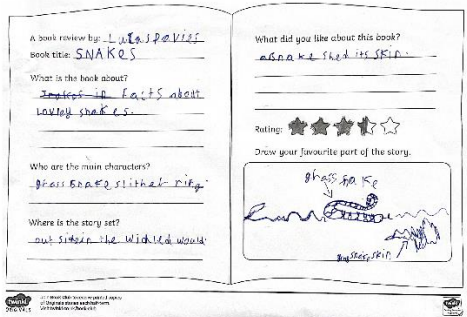 A book review by: Lucas Davies
Book title: SNAKES
What is the book about?
in Facts about
lovley snakes.
Who are the main characters?
grass snake slither ring.
Where is the story set?
out side in the wichled would.
What did you like about this book?
a Snake shed its skin.
Rating:
Draw your favourite part of the story.
grass snake
skin
twinkl